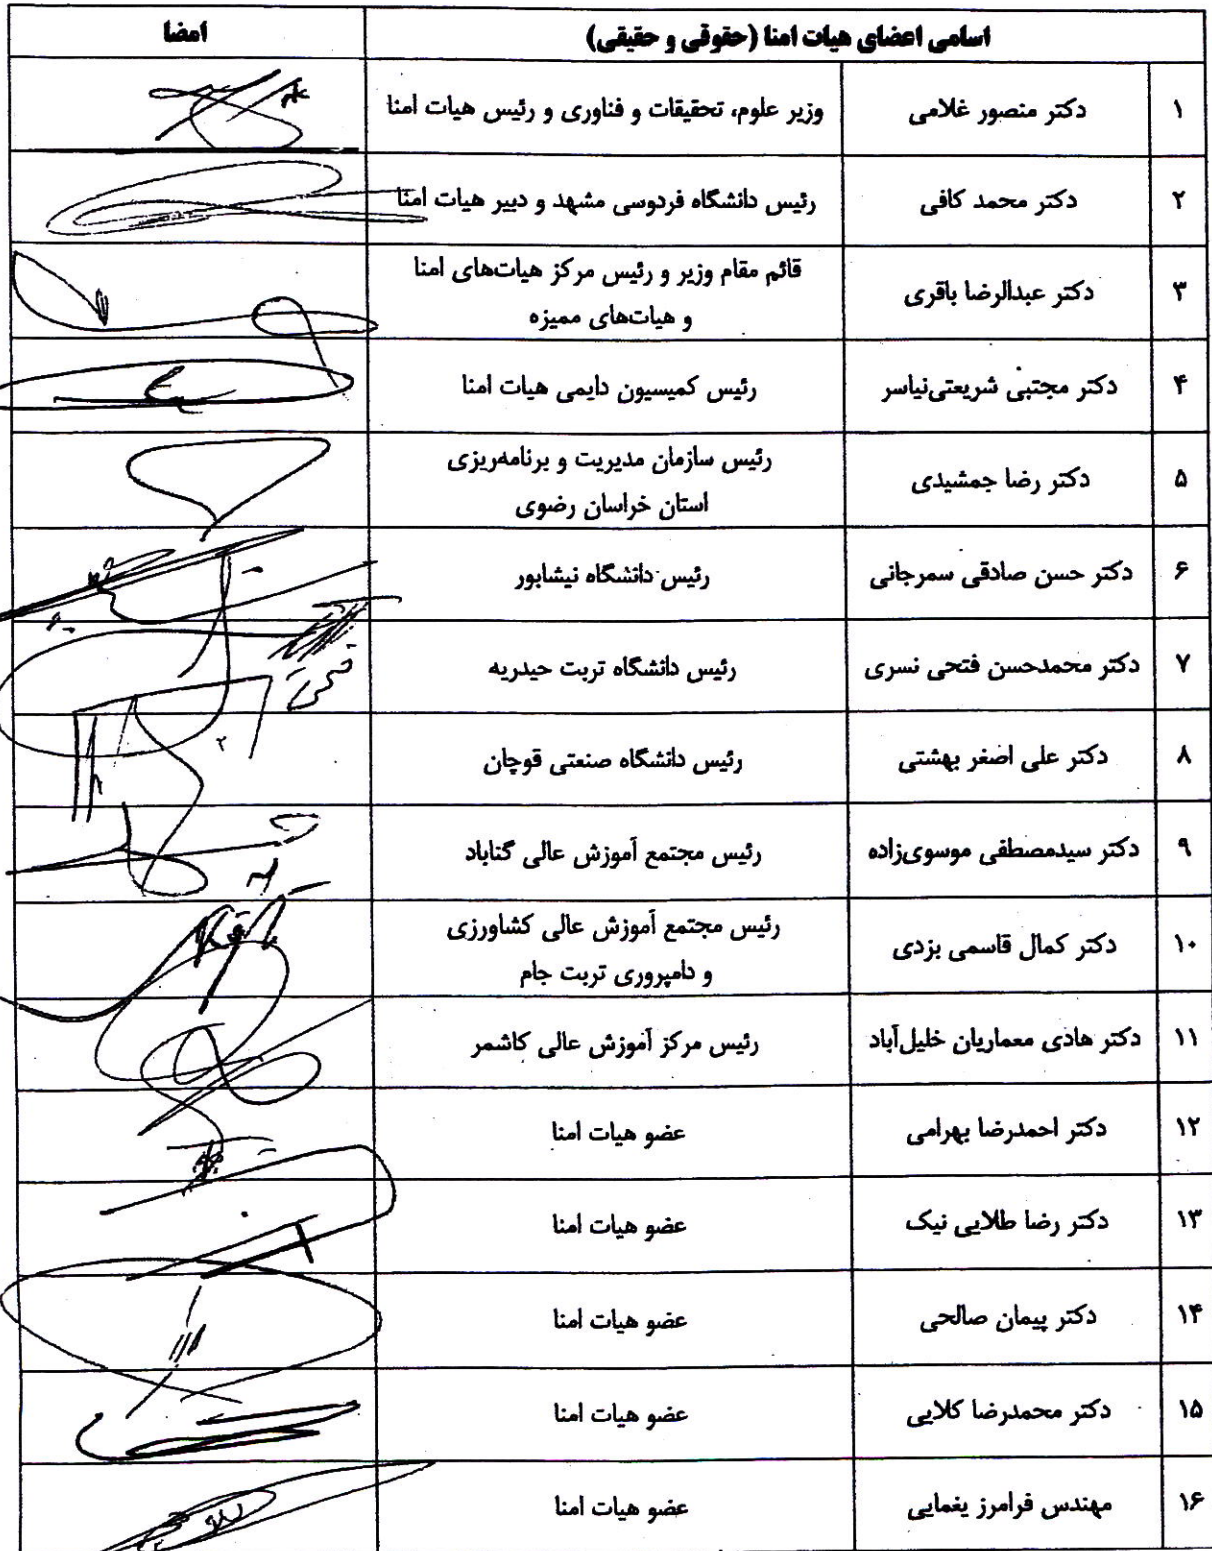 اسامی اعضای هیات امنا (حقوقی و حقیقی) امضا
۱ دکتر منصور غلامی وزیر علوم، تحقیقات و فناوری و رئیس هیات امنا
۲ دکتر محمد کافی رئیس دانشگاه فردوسی مشهد و دبیر هیات امنا
۳ دکتر عبدالرضا باقری قائم مقام وزیر و رئیس مرکز هیات‌های امنا
و هیات‌های ممیزه
۴ دکتر مجتبی شریعتی‌نیاسر رئیس کمیسیون دایمی هیات امنا
۵ دکتر رضا جمشیدی رئیس سازمان مدیریت و برنامه‌ریزی
استان خراسان رضوی
۶ دکتر حسن صادقی سمرجانی رئیس دانشگاه نیشابور
۷ دکتر محمدحسن فتحی نسری رئیس دانشگاه تربت حیدریه
۸ دکتر علی اصغر بهشتی رئیس دانشگاه صنعتی قوچان
۹ دکتر سیدمصطفی موسوی‌زاده رئیس مجتمع آموزش عالی گناباد
۱۰ دکتر کمال قاسمی بزدی رئیس مجتمع آموزش عالی کشاورزی
و دامپروری تربت جام
۱۱ دکتر هادی معماریان خلیل‌آباد رئیس مرکز آموزش عالی کاشمر
۱۲ دکتر احمدرضا بهرامی عضو هیات امنا
۱۳ دکتر رضا طلایی نیک عضو هیات امنا
۱۴ دکتر پیمان صالحی عضو هیات امنا
۱۵ دکتر محمدرضا کلایی عضو هیات امنا
۱۶ مهندس فرامرز یغمایی عضو هیات امنا